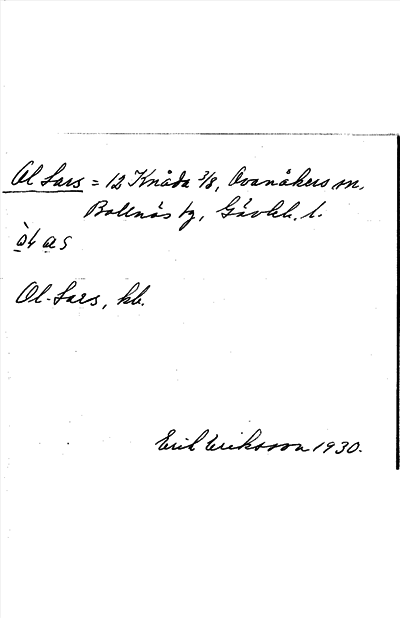 Ol Lars = 12 Knåda 3/8, Ovanåkers sn,
Bollnäs tg, Gävleb. l.
Ol-Lars, kb.
Erik Eriksson 1930.